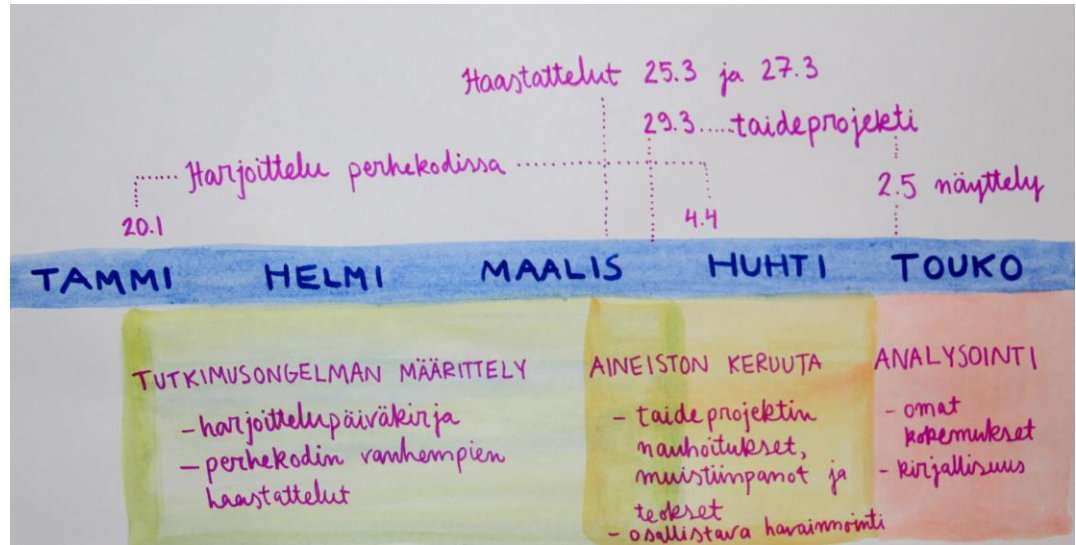 Haastattelut 25.3 ja 27.3
29.3.....taideprojekti
Harjoittelu perhekodissa
2.5 näyttely
20.1
4.4
TAMMI HELMI MAALIS HUHTI TOUKO
TUTKIMUSONGELMAN MÄÄRITTELY
- harjoittelupäiväkirja
- perhekodin vanhempien
haastattelut
AINEISTON KERUUTA
- taideprojektin
nauhoitukset,
muistiinpanot ja
teokset
- osallistava havainnointi
ANALYSOINTI
- omat
kokemukset
- kirjallisuus